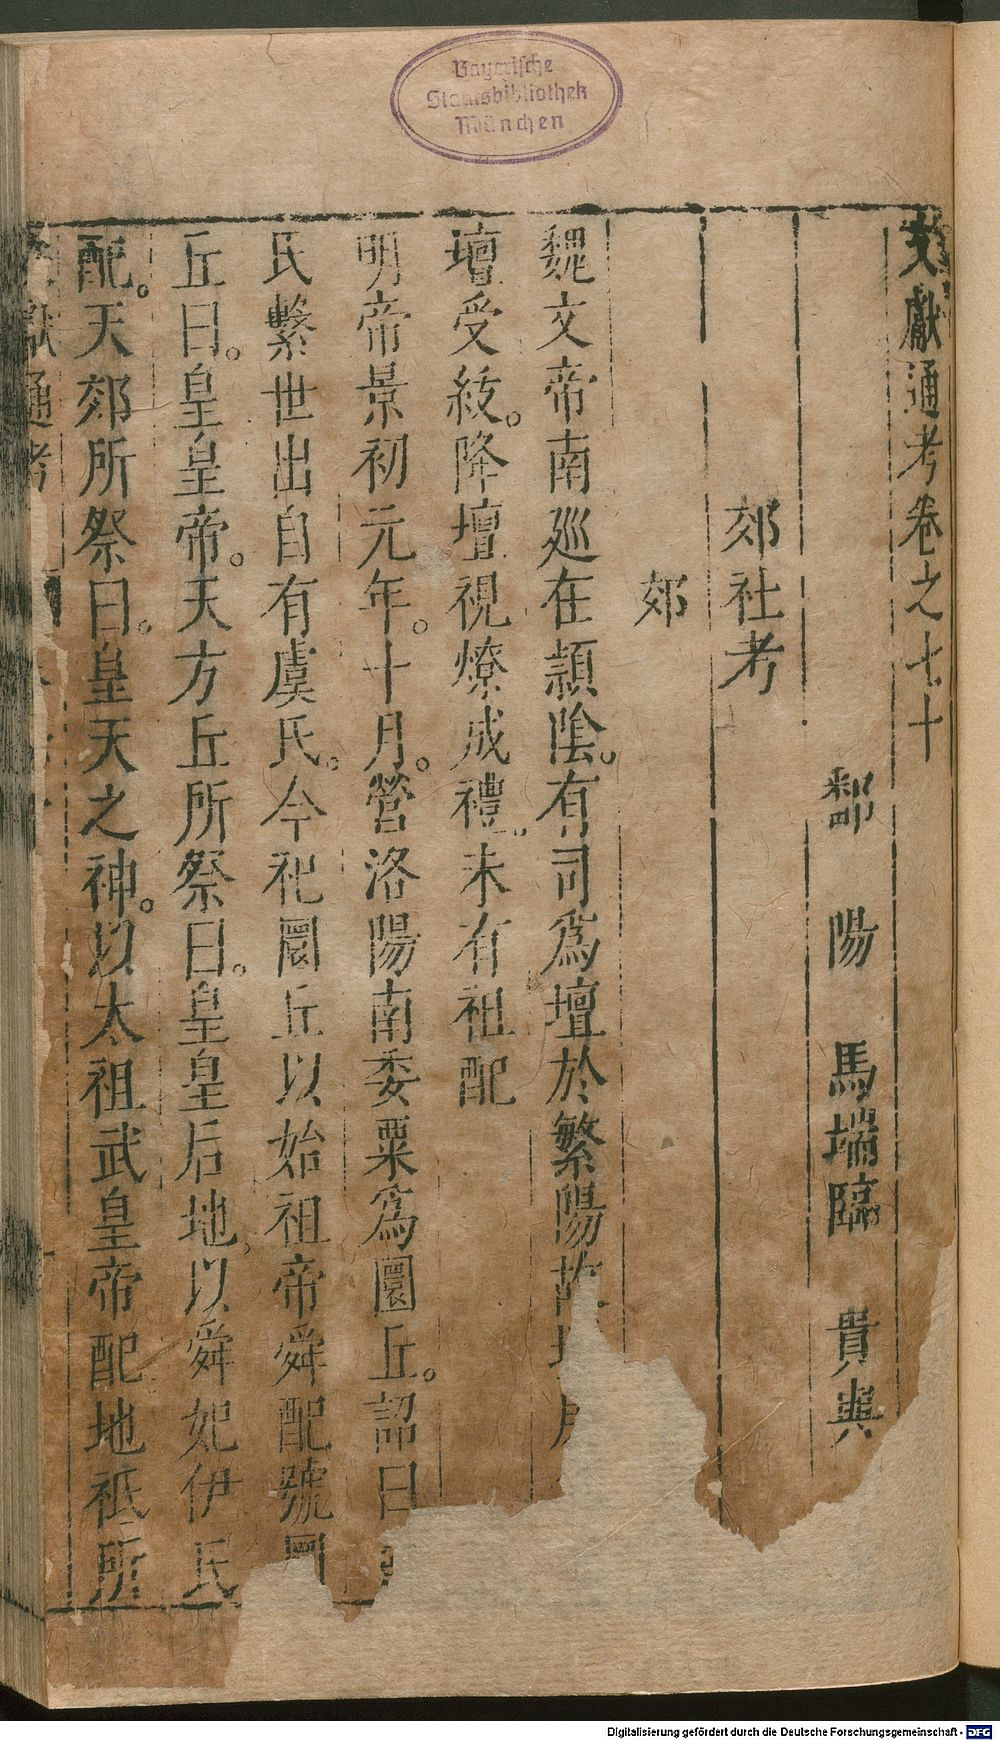 Bayerische
Staatsbibliothek
München
文獻通考卷之七十
鄱 陽 馬端臨 貴與
郊社考
郊
魏文帝南廵在頴隂。有司爲壇於繁陽故
壇受紱。降壇視燎成禮。未有祖配
明帝景初元年。十月。營洛陽南委粟爲圜丘。詔曰
氏繫世出自有虞氏。今祀圜丘以始祖帝舜配號圜
丘曰。皇皇帝。天方丘所祭曰。皇皇后地。以舜妃伊氏
配。天郊所祭曰。皇天之神。以太祖武皇帝配地祇所
獻通考
Digitalisierung gefördert durch die Deutsche Forschungsgemeinschaft - DFG